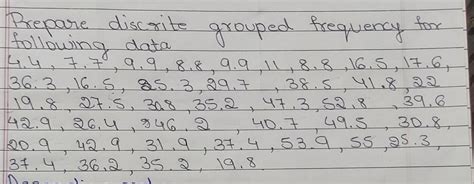 Prepare discrite grouped frequency for
following data
4.4, 7.7, 9.9, 8.8, 9.9, 11, 8.8, 16.5, 17.6,
36.3, 16.5, 25.3, 29.7, 38.5, 41.8, 22
19.8, 27.5, 30.8, 35.2, 47.3, 52.8, 39.6
42.9, 26.4, 46.2, 40.7, 49.5, 30.8,
20.9, 42.9, 31.9, 37.4, 53.9, 55, 25.3,
37.4, 36.2, 35.2, 19.8